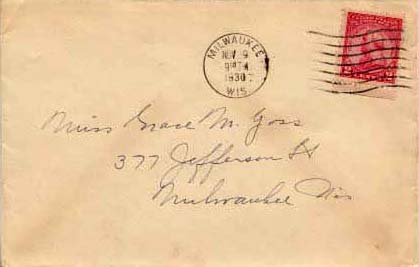 MILWAUKEE
NOV 9
1930
WIS
Miss Grace M. Goss
377 Jefferson St
Milwaukee Wis